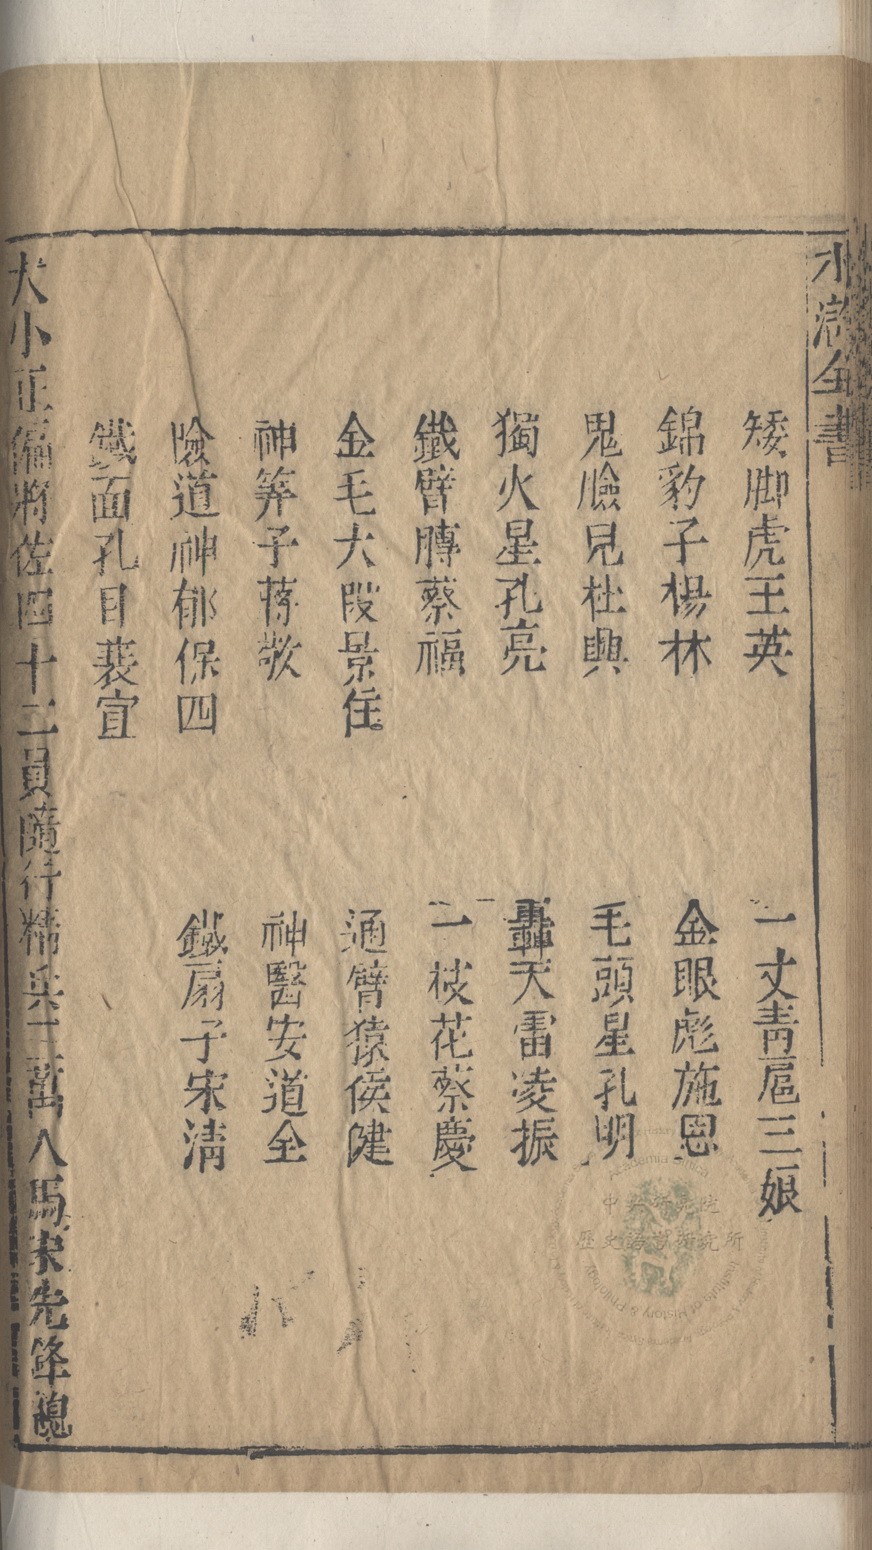 水滸全書
矮脚虎王英 一丈青扈三娘
錦豹子楊林 金眼彪施恩
鬼臉兒杜興 毛頭星孔明
獨火星孔亮 轟天雷凌振
鐵臂膊蔡福 一枝花蔡慶
金毛犬段景住 通臂猿侯健
神筭子蔣敬 神醫安道全
險道神郁保四 鐵扇子宋清
鐵面孔目裴宣
大小正偏將佐四十二員隨行精兵三萬人馬宋先鋒總
中央研究院
歷史語言研究所